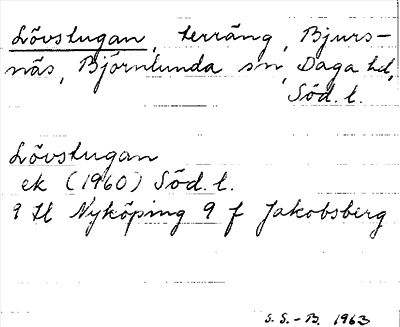 Lövstugan, terräng, Bjurs-
näs, Björnlunda sn, Daga hd,
Söd. l.
Lövstugan
ek (1960) Söd. l.
9 H Nyköping 9 f Jakobsberg
S.S.-B. 1963